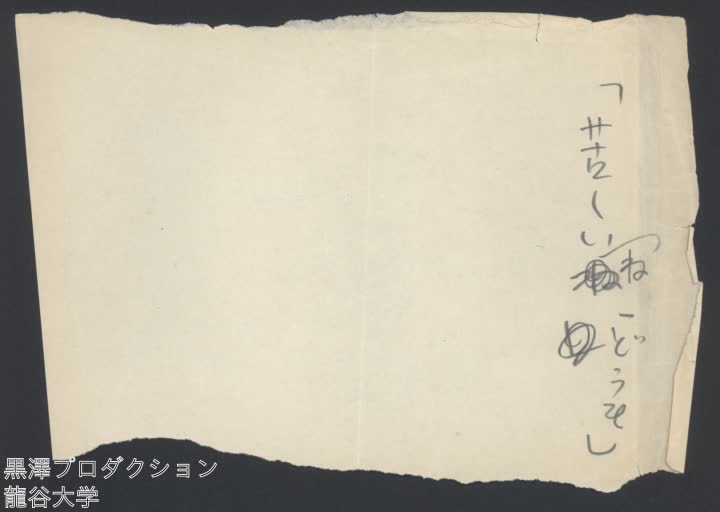 「苦しいね
こどうも」
黒澤プロダクション
龍谷大学